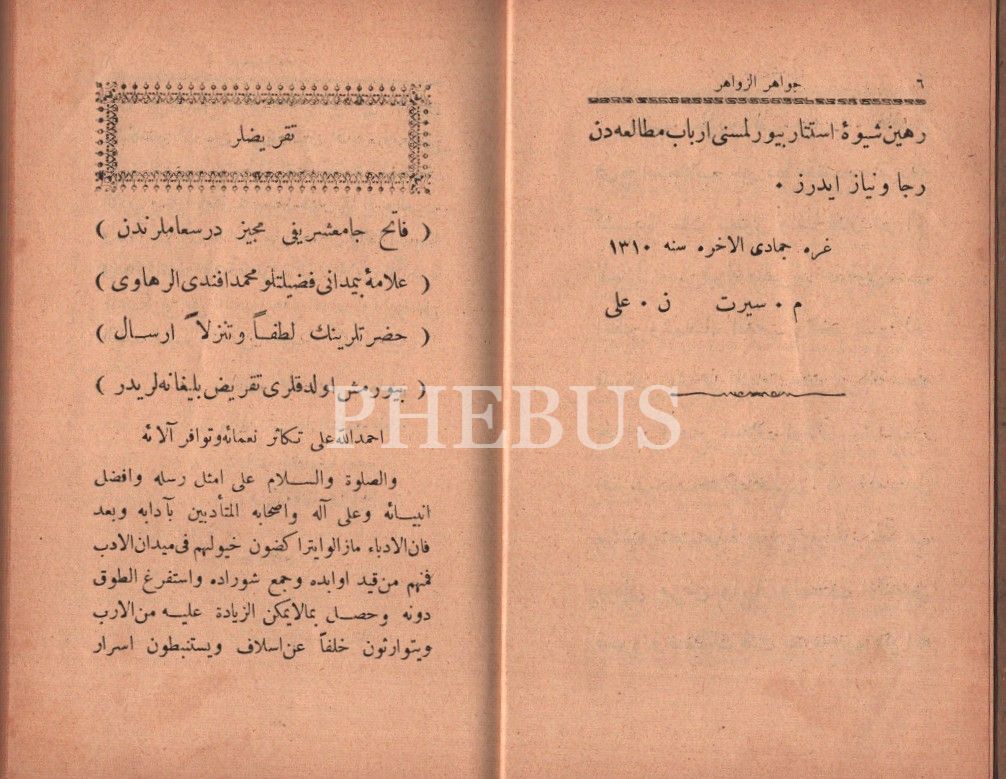 ٦
جواهر الزواهر
رهين شيوۀ استتار بيورلمسنى ارباب مطالعه دن
رجا ونياز ايدرز ٠
غره جمادى الاخره سنه ١٣١٠
م ٠ سيرت ن ٠ على
تقريضلر
( فاتح جامعشريفى مجيز درسعاملرندن )
( علامۀ بيمدانى فضيلتلو محمد افندى الرهاوى )
( حضرتلرينك لطفاً وتنزلاً ارسال )
( بيورمش اولدقلرى تقريض بليغانه لريدر )
احمد الله على تكاثر نعمائه وتوافر آلائه
والصلوة والسلام على امثل رسله وافضل
انبيائه وعلى آله واصحابه المتأدبين بآدابه وبعد
فان الادباء مازالوا يتراكضون خيولهم فى ميدان الادب
فمنهم من قيد اوابده وجمع شوراده واستفرغ الطوق
دونه وحصل بمالايمكن الزيادة عليه من الارب
ويتوارثون خلفاً عن اسلاف ويستنبطون اسرار
PHEBUS